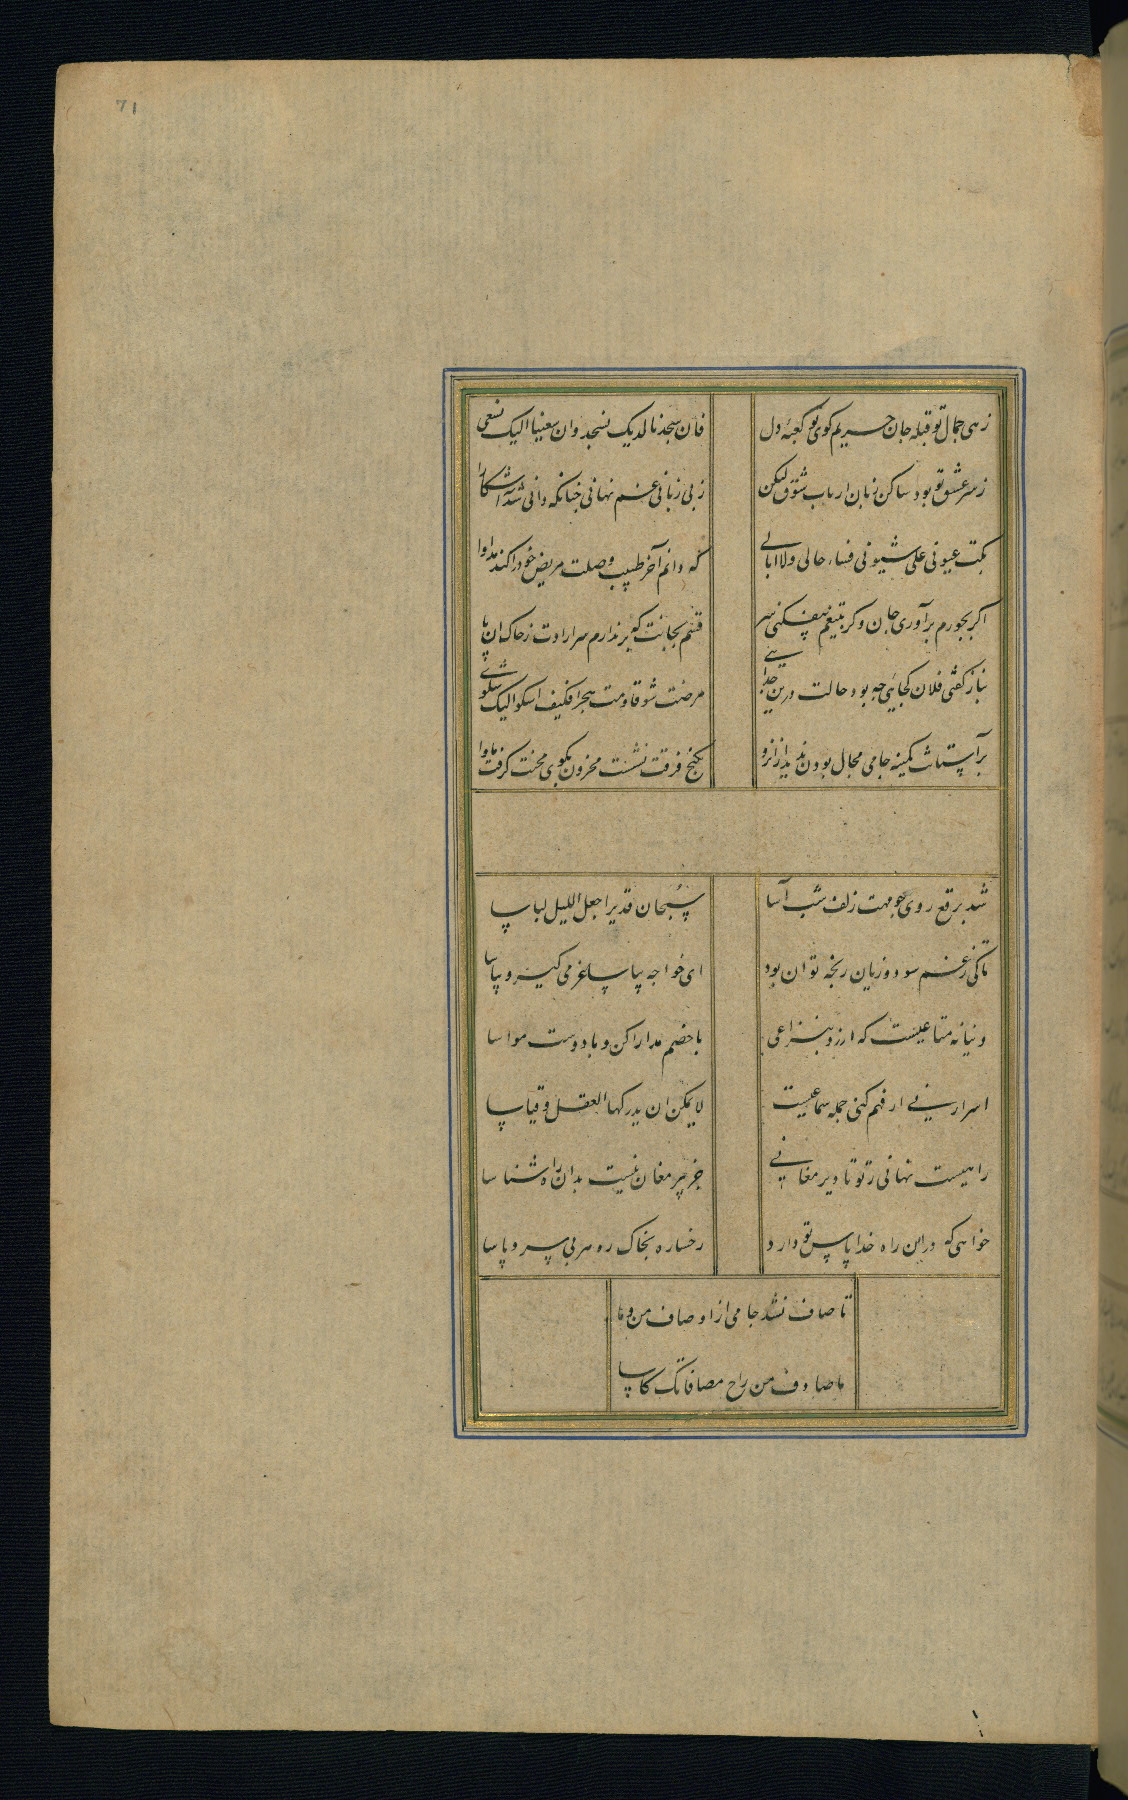 71
زهی جمال تو قبله جان حریم کوی تو کعبه دل فان سجدنا لدیک نسجد وان سعینا الیک نسعی
ز سر عشق تو بود ساکن زبان ارباب شوق لیکن ز بی زبانی غم نهانی چنانکه دانی شد آشکارا
بکت عیونی علی شیونی فساء حالی ولا ابالی که دانم آخر طبیب وصلت مریض خود را کند مداوا
اگر بجورم برآوری جان وگر بتیغم بیفکنی سر قسم بجانت که برندارم سر ارادت ز خاک آن پا
بناز گفتی فلان کجایی چه بود حالت درین جدایی مرضت شوقا ومت هجرا فکیف اشکو الیک شکوی
بر آستانت کمینه جامی مجال بودن ندید از آنرو بکنج فرقت نشست محزون بکوی محنت گرفت ماوا
شد برقع روی چو مهت زلف شب آسا سبحان قدیرا جعل اللیل لباسا
تا کی ز غم سود و زیان رنجه توان بود ای خواجه بیا ساغر می گیر و بیاسا
دنیا نه متاعیست که ارزد بنزاعی با خصم مدارا کن و با دوست مواسا
اسرار نی ار فهم کنی جمله سماعیست لا یمکن ان یدرکها العقل و قیاسا
راهیست نهانی ز تو تا دیر مغانی جز پیر مغان نیست بدان راه شناسا
خواهی که در این راه خدا پاس تو دارد رخساره بخاک ره هر بی سر و پا سا
تا صاف نشد جامی از اوصاف من و ما
ما صادف من راح مصافاتک کاسا